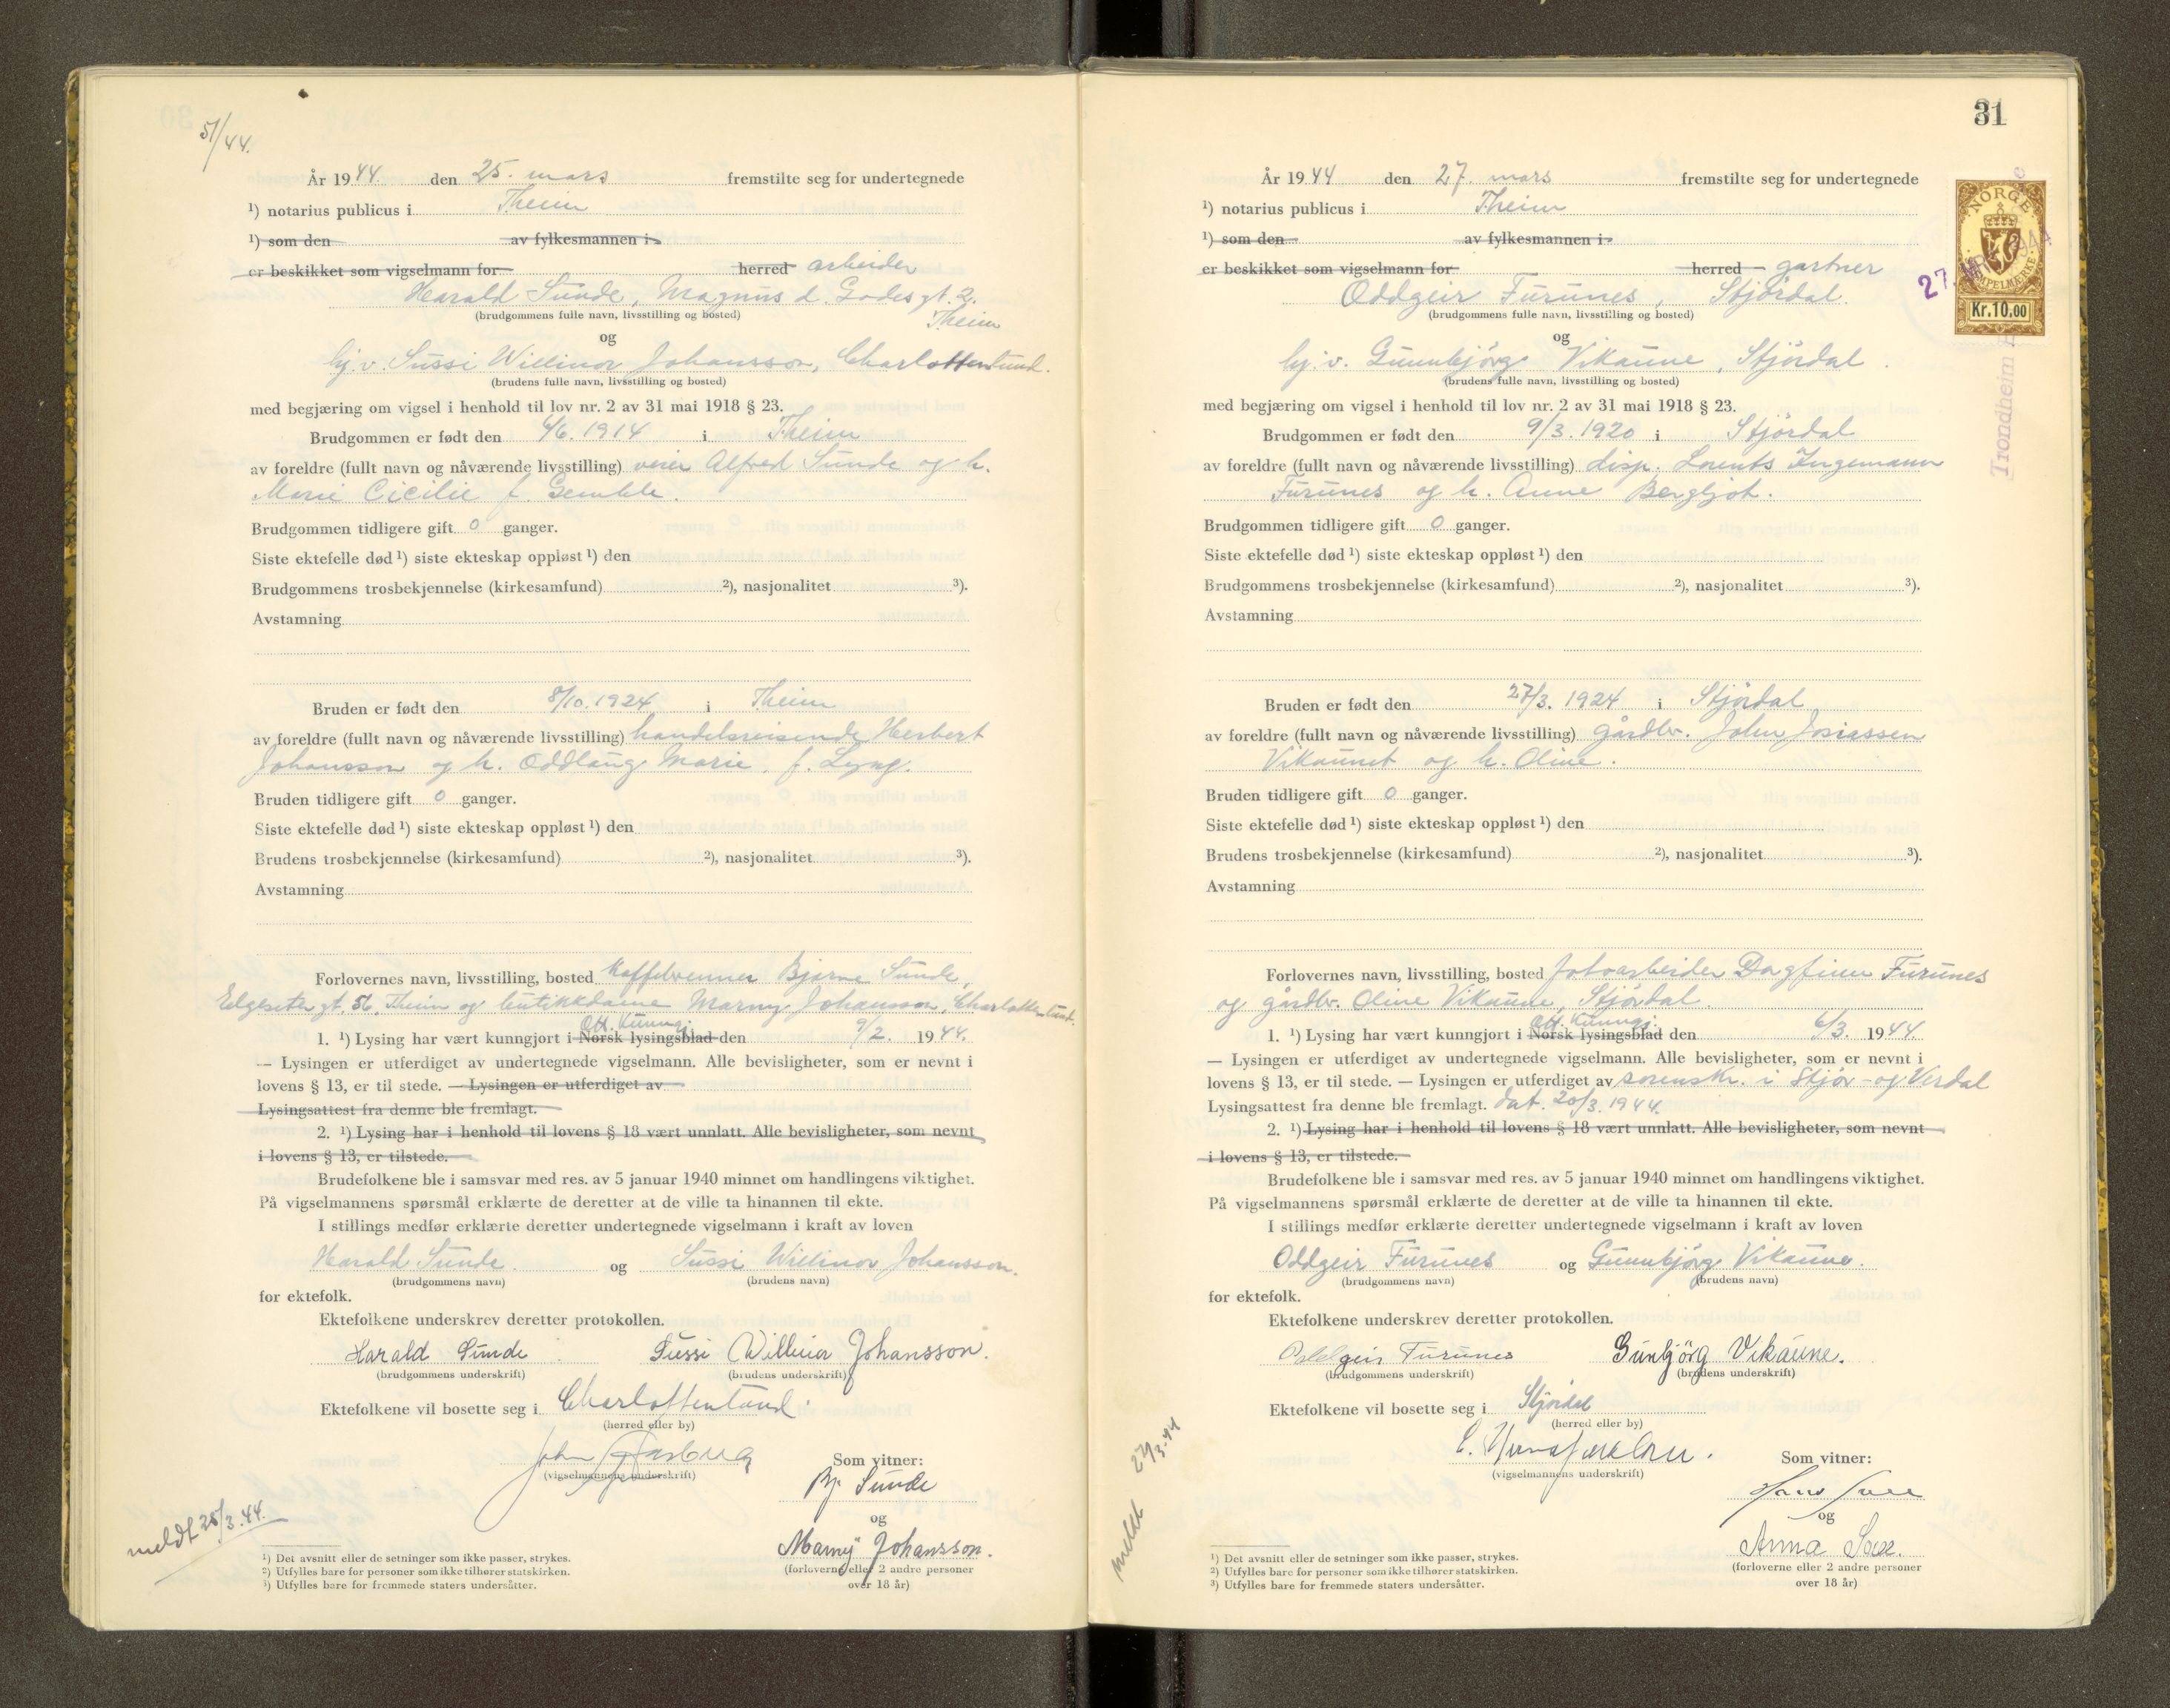 51/44.
År 1944. den 25. mars fremstilte seg for undertegnede
¹) notarius publicus i Theim
¹) som den av fylkesmannen i
er beskikket som vigselmann for herred arbeider
Harald Sunde, Magnus d. Godes gt. 2.
(brudgommens fulle navn, livsstilling og bosted) Theim
og
hj.v. Sussi Willinor Johansson, Charlottenlund.
(brudens fulle navn, livsstilling og bosted)
med begjæring om vigsel i henhold til lov nr. 2 av 31 mai 1918 § 23.
Brudgommen er født den 4/6. 1914 i Theim
av foreldre (fullt navn og nåværende livsstilling) Alfred Sunde og h.
Marie Cicilie f.
Brudgommen tidligere gift 0 ganger.
Siste ektefelle død ¹) siste ekteskap oppløst ¹) den
Brudgommens trosbekjennelse (kirkesamfund) ²), nasjonalitet ³).
Avstamning
Bruden er født den 8/10. 1924 i Theim
av foreldre (fullt navn og nåværende livsstilling) handelsreisende Herbert
Johansson og h. Oddlaug Marie, f. Lyng.
Bruden tidligere gift 0 ganger.
Siste ektefelle død ¹) siste ekteskap oppløst ¹) den
Brudens trosbekjennelse (kirkesamfund) ²), nasjonalitet ³).
Avstamning
Forlovernes navn, livsstilling, bosted Kaffebrenner Bjarne Sunde,
Elgeseter gt. 56, Theim og butikkdame Marny Johansson, Charlottenlund.
Off. Kunngj.
1. ¹) Lysing har vært kunngjort i Norsk lysingsblad den 9/2. 1944.
— Lysingen er utferdiget av undertegnede vigselmann. Alle bevisligheter, som er nevnt i
lovens § 13, er til stede. — Lysingen er utferdiget av
Lysingsattest fra denne ble fremlagt.
2. ¹) Lysing har i henhold til lovens § 18 vært unnlatt. Alle bevisligheter, som nevnt
i lovens § 13, er tilstede.
Brudefolkene ble i samsvar med res. av 5 januar 1940 minnet om handlingens viktighet.
På vigselmannens spørsmål erklærte de deretter at de ville ta hinannen til ekte.
I stillings medfør erklærte deretter undertegnede vigselmann i kraft av loven
Harald Sunde. og Sussi Willinor Johansson.
(brudgommens navn) (brudens navn)
for ektefolk.
Ektefolkene underskrev deretter protokollen.
Harald Sunde Sussi Willinor Johansson.
(brudgommens underskrift) (brudens underskrift)
Ektefolkene vil bosette seg i Charlottenlund.
(herred eller by)
John
(vigselmannens underskrift) Som vitner:
Bj. Sunde
og
Marny Johansson.
(forloverne eller 2 andre personer
over 18 år)
meldt 28/3.44.
¹) Det avsnitt eller de setninger som ikke passer, strykes.
²) Utfylles bare for personer som ikke tilhører statskirken.
³) Utfylles bare for fremmede staters undersåtter.
31
År 1944 den 27. mars fremstilte seg for undertegnede
¹) notarius publicus i Theim
¹) som den av fylkesmannen i
er beskikket som vigselmann for herred gartner
Oddgeir Furunes, Stjördal.
(brudgommens fulle navn, livsstilling og bosted)
og
hj. v. Gunnbjörg Vikaune, Stjördal.
(brudens fulle navn, livsstilling og bosted)
med begjæring om vigsel i henhold til lov nr. 2 av 31 mai 1918 § 23.
Brudgommen er født den 9/3. 1920 i Stjördal
av foreldre (fullt navn og nåværende livsstilling) disp. Lorents Ingemann
Furunes og h. Anne Bergljot.
Brudgommen tidligere gift 0 ganger.
Siste ektefelle død ¹) siste ekteskap oppløst ¹) den
Brudgommens trosbekjennelse (kirkesamfund) ²), nasjonalitet ³).
Avstamning
Bruden er født den 27/3. 1924 i Stjördal
av foreldre (fullt navn og nåværende livsstilling) gårdbr. John Josiassen
Vikaunet og h. Oline.
Bruden tidligere gift 0 ganger.
Siste ektefelle død ¹) siste ekteskap oppløst ¹) den
Brudens trosbekjennelse (kirkesamfund) ²), nasjonalitet ³).
Avstamning
Forlovernes navn, livsstilling, bosted Dagfinn Furunes
og gårdbr. Oline Vikaune, Stjördal.
Off. Kunngj.
1. ¹) Lysing har vært kunngjort i Norsk lysingsblad den 6/3. 1944.
— Lysingen er utferdiget av undertegnede vigselmann. Alle bevisligheter, som er nevnt i
lovens § 13, er til stede. — Lysingen er utferdiget av sorenskr. i Stjör- og Verdal
Lysingsattest fra denne ble fremlagt. dat. 20/3. 1944.
2. ¹) Lysing har i henhold til lovens § 18 vært unnlatt. Alle bevisligheter, som nevnt
i lovens § 13, er tilstede.
Brudefolkene ble i samsvar med res. av 5 januar 1940 minnet om handlingens viktighet.
På vigselmannens spørsmål erklærte de deretter at de ville ta hinannen til ekte.
I stillings medfør erklærte deretter undertegnede vigselmann i kraft av loven
Oddgeir Furunes og Gunnbjörg Vikaune.
(brudgommens navn) (brudens navn)
for ektefolk.
Ektefolkene underskrev deretter protokollen.
Oddgeir Furunes Gunbjörg Vikaune.
(brudgommens underskrift) (brudens underskrift)
Ektefolkene vil bosette seg i Stjördal
(herred eller by)
(vigselmannens underskrift) Som vitner:
og
Anna
(forloverne eller 2 andre personer
over 18 år)
meldt 27/3.44
¹) Det avsnitt eller de setninger som ikke passer, strykes.
²) Utfylles bare for personer som ikke tilhører statskirken.
³) Utfylles bare for fremmede staters undersåtter.
NORGE
STEMPELMERKE
Kr.10.00
27. MRS. 1944
Trondheim